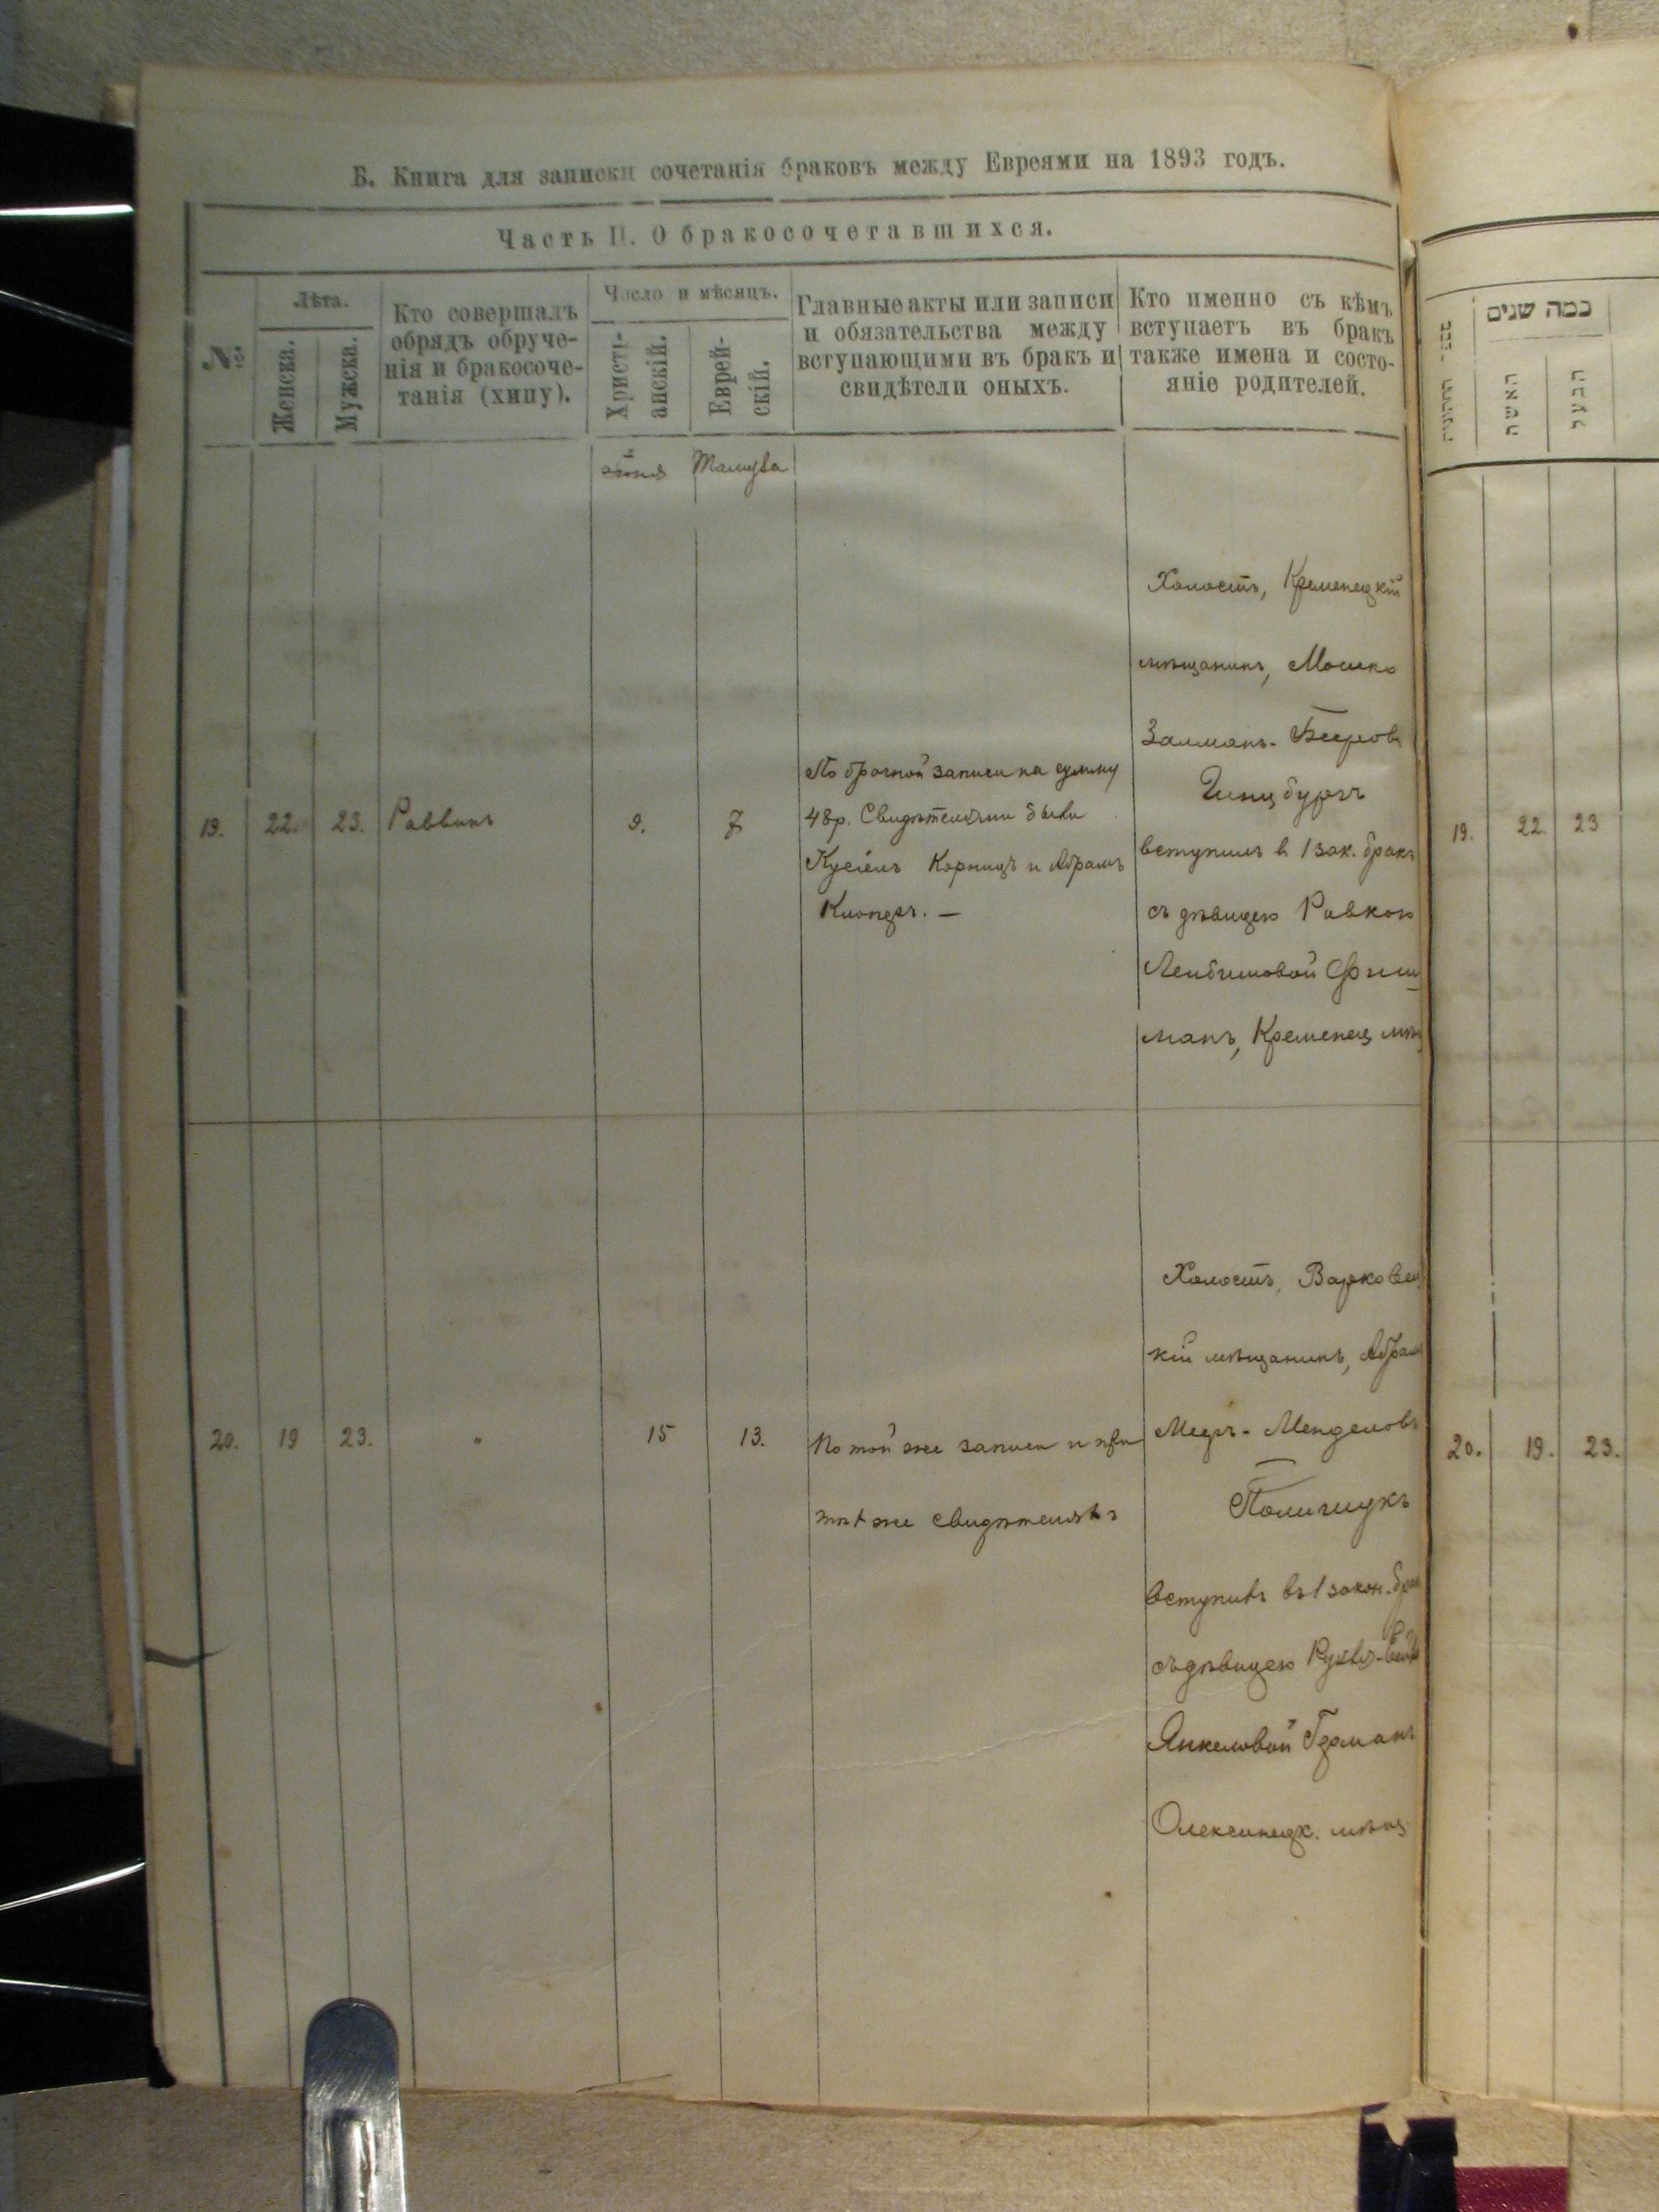 Б. Книга для записки сочетанія браковъ между Евреями на 1893 годъ.
Часть II. О бракосочетавшихся.
№
Лѣта.
Женска.
Мужска.
Кто совершалъ
обрядъ обруче-
нія и бракосоче-
танія (хипу).
Число и мѣсяцъ.
Христі-
анскій.
Еврей-
скій.
Главные акты или записи
и обязательства между
вступающими въ бракъ и
свидѣтели оныхъ.
Кто именно съ кѣмъ
вступаетъ въ бракъ
также имена и состо-
яніе родителей.
Тамуза
19. 22. 23. Раввинъ 9. 7
По брачной записи на сумму
48р. Свидѣтелями были
Кусіель Корницъ и Абрамъ
Холостъ, Кременецкій
мѣщанинъ, Мошко
Залманъ-Беровъ
Гинцбургъ
вступилъ в 1 зак. бракъ
съ дѣвицею Ривкою
Лейбишовой Фиш
манъ, Кременец мѣщ
20. 19 23. " 15 13.
По той же записи и при
тѣх же свидѣтелях
Холостъ, Варковец
кій мѣщанинъ, Абрам
Меер-Менделовъ
Полищукъ
вступилъ въ 1 закон. брак
съ дѣвицею
Янкеловой
Олексинецк. мѣщ.
כמה שנים
האשה
הבעל
19. 22. 23
20. 19. 23.